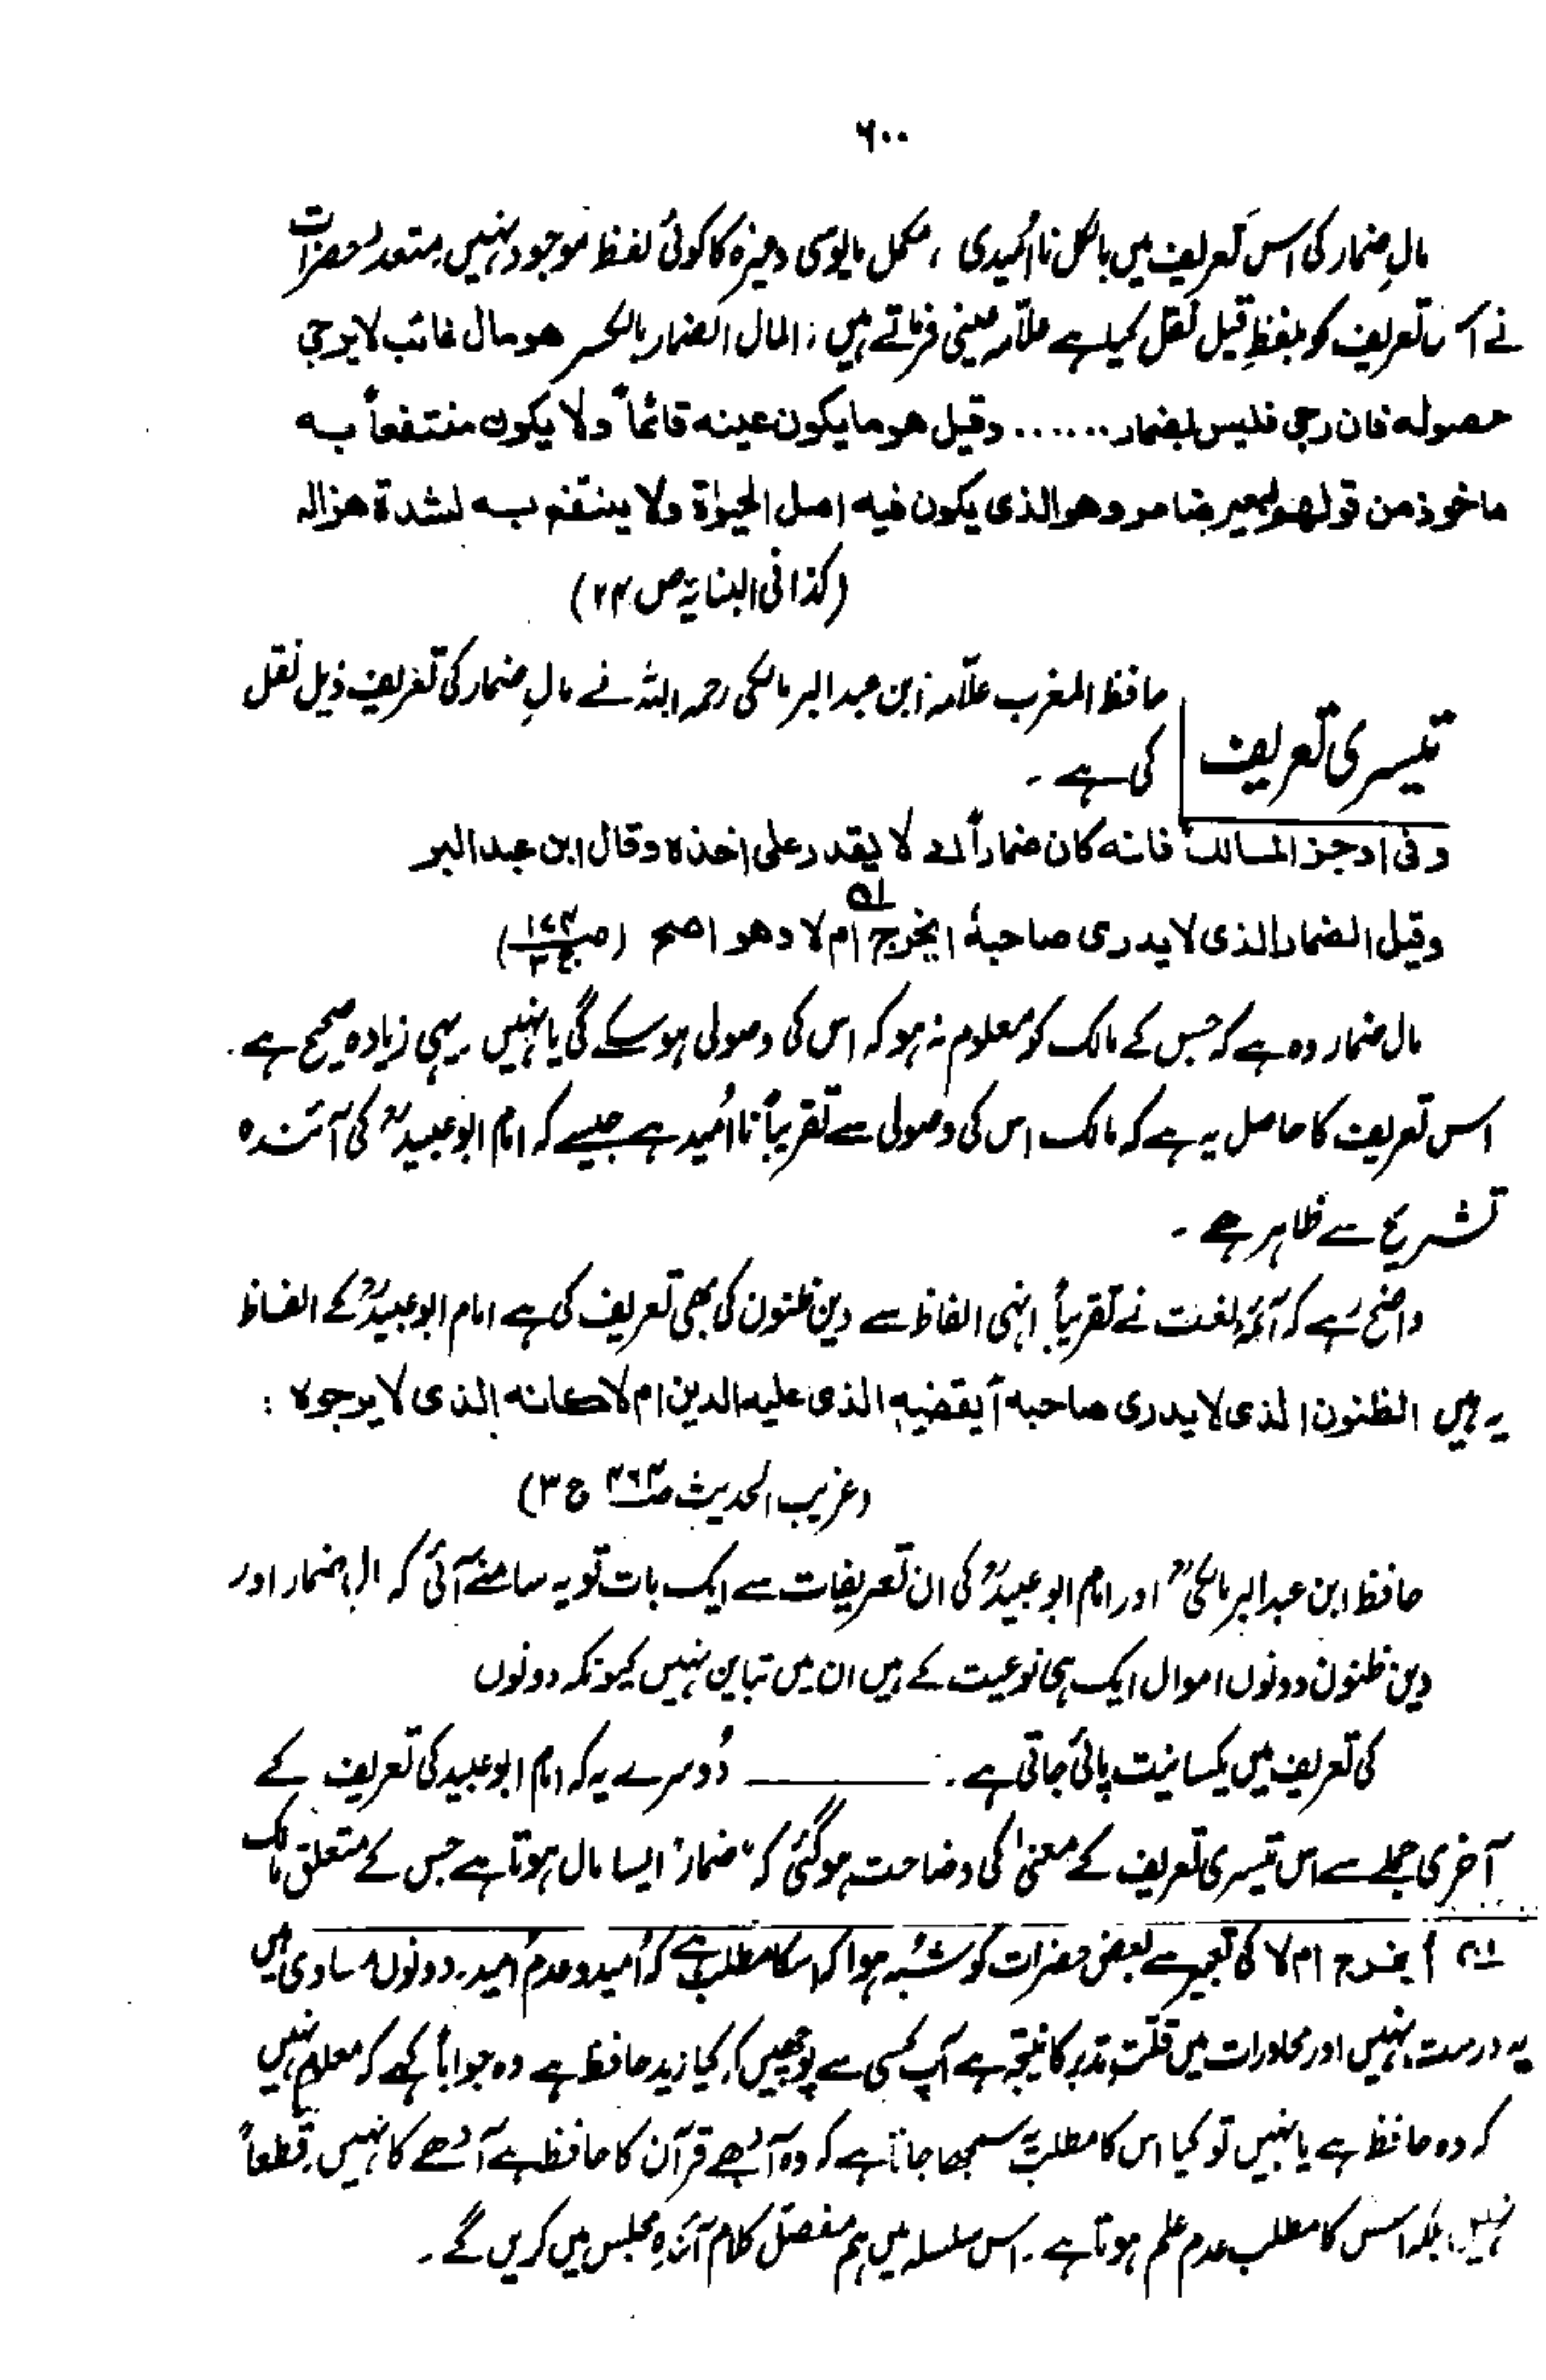 ٦٠٠
مالِ ضمار کی اس تعریف میں بالکل نا اُمیدی ، مکمل مایوسی وغیرہ کا کوئی لفظ موجود نہیں متعدد حضرات
نے اس تعریف کو بلفظِ قیل نقل کیا ہے علّامہ عینی فرماتے ہیں : المال الضمار بالکسر هو مال غائب لا یرجی
حصوله فان رجی فلیس بضمار ...... وقیل هو ما یکون عینه قائماً ولا یکون منتفعاً به
ماخوذ من قولهم بعیر ضامر وهو الذی یکون فیه اصل الحیٰوة ولا ینتفع به لشدة هزاله
(کذا فی البنایۃ ص ۲۴)
حافظ المغرب علّامہ ابن عبد البر مالکی رحمہ اللہ نے مالِ ضمار کی تعریف ذیل نقل
تیسری تعریف
کی ہے ۔
وفی اوجز المسالک فانه کان ضماراً ای لا یقدر علی اخذه وقال ابن عبد البر
وقیل الضمار الذی لا یدری صاحبهٗ ایخرج ام لا وهو اصح
مال ضمار وہ ہے کہ جس کے مالک کو معلوم نہ ہو کہ اس کی وصولی ہو سکے گی یا نہیں یہی زیادہ صحیح ہے ۔
اس تعریف کا حاصل یہ ہے کہ مالک اس کی وصولی سے تقریباً نا اُمید ہے جیسے کہ امام ابو عبیدؒ کی آئندہ
تشریح سے ظاہر ہے ۔
واضح رہے کہ آئمہ لغت نے تقریباً انہی الفاظ سے دین ظنون کی بھی تعریف کی ہے امام ابو عبیدؒ کے الفاظ
یہ ہیں الظنون الذی لا یدری صاحبه أیقضیه الذی علیه الدین ام لا کانه الذی لا یرجوه :
(غریب الحدیث ج ۳)
حافظ ابن عبد البر مالکیؒ اور امام ابو عبیدؒ کی ان تعریفات سے ایک بات تو یہ سامنے آئی کہ مال ضمار اور
دین ظنون دونوں اموال ایک ہی نوعیت کے ہیں ان میں تباین نہیں کیونکہ دونوں
کی تعریف میں یکسانیت پائی جاتی ہے ۔ ــــــــــ دُوسرے یہ کہ امام ابو عبید کی تعریف کے
آخری جملے سے اس تیسری تعریف کے معنیٰ کی وضاحت ہو گئی کہ "ضمار" ایسا مال ہوتا ہے جس کے متعلق مالک
أیخرج ام لا کی تعبیر سے بعض حضرات کو شُبہ ہوا کہ اسکا مطلب ہے کہ اُمید و عدم اُمید دونوں مساوی ہیں
یہ درست نہیں اور محاورات میں قلّت تدبر کا نتیجہ ہے آپ کسی سے پوچھیں کہ کیا زید حافظ ہے وہ جواباً کہے کہ معلوم نہیں
کہ وہ حافظ ہے یا نہیں تو کیا اس کا مطلب یہ سمجھا جاتا ہے کہ وہ آدھے قرآن کا حافظ ہے آدھے کا نہیں قطعاً
نہیں بلکہ اس کا مطلب عدم علم ہوتا ہے ۔ اس سلسلہ میں ہم مفصّل کلام آئندہ مجلس میں کریں گے ۔